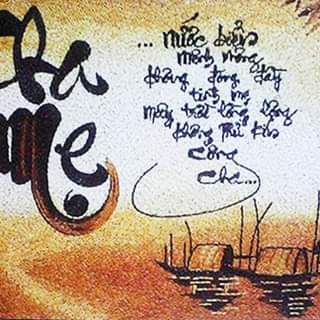 Cha
Mẹ
... nước biển
mênh mông
không đong đầy
tình mẹ
mây trời lồng lộng
không phủ kín
công
cha...